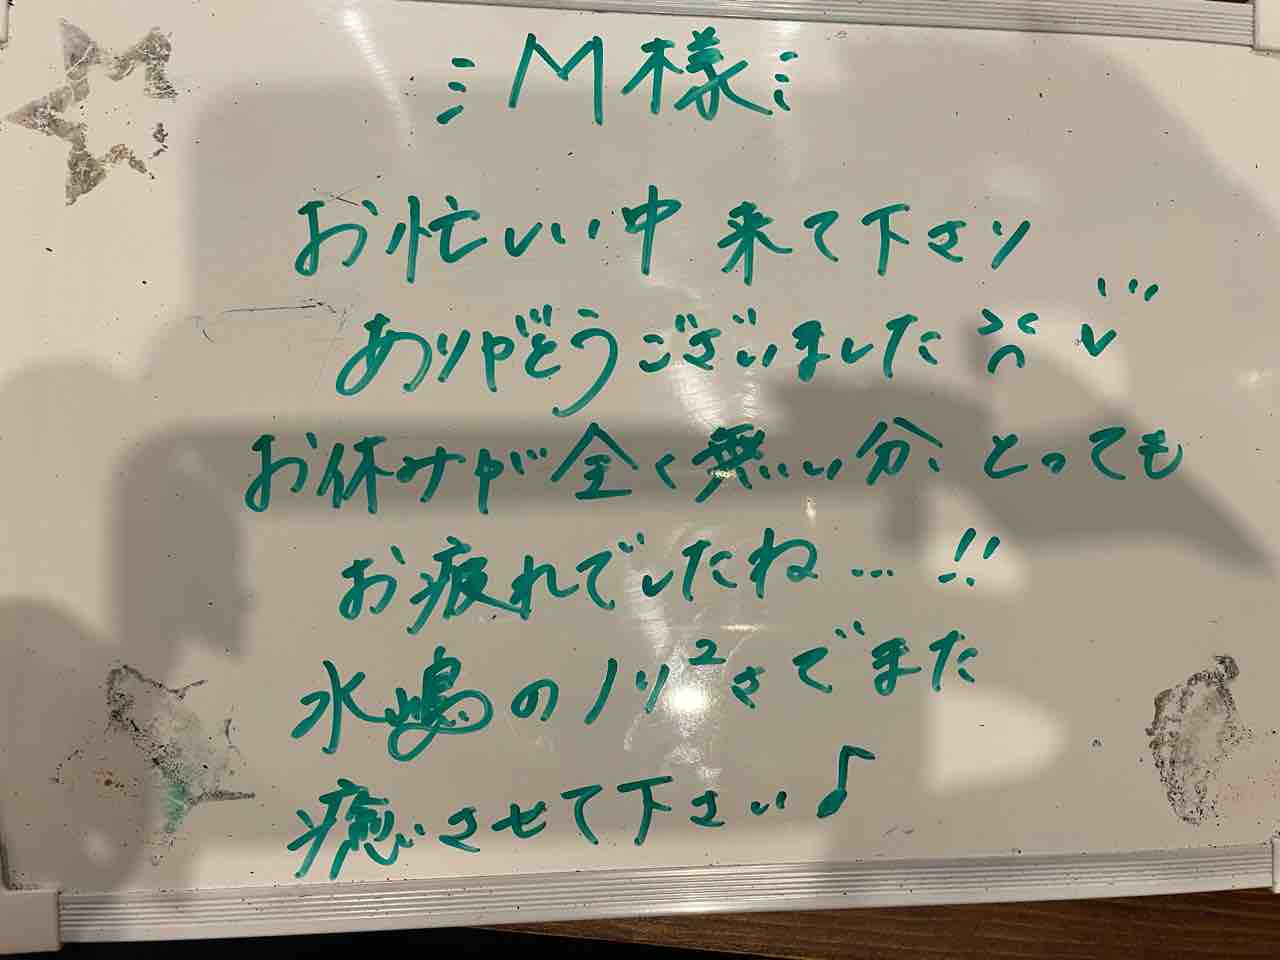 M様
お忙しい中 来て下さり
ありがとうございました
お休みが全く無い分、とっても
お疲れでしたね…!!
水嶋のノリ²さでまた
癒させて下さい♪